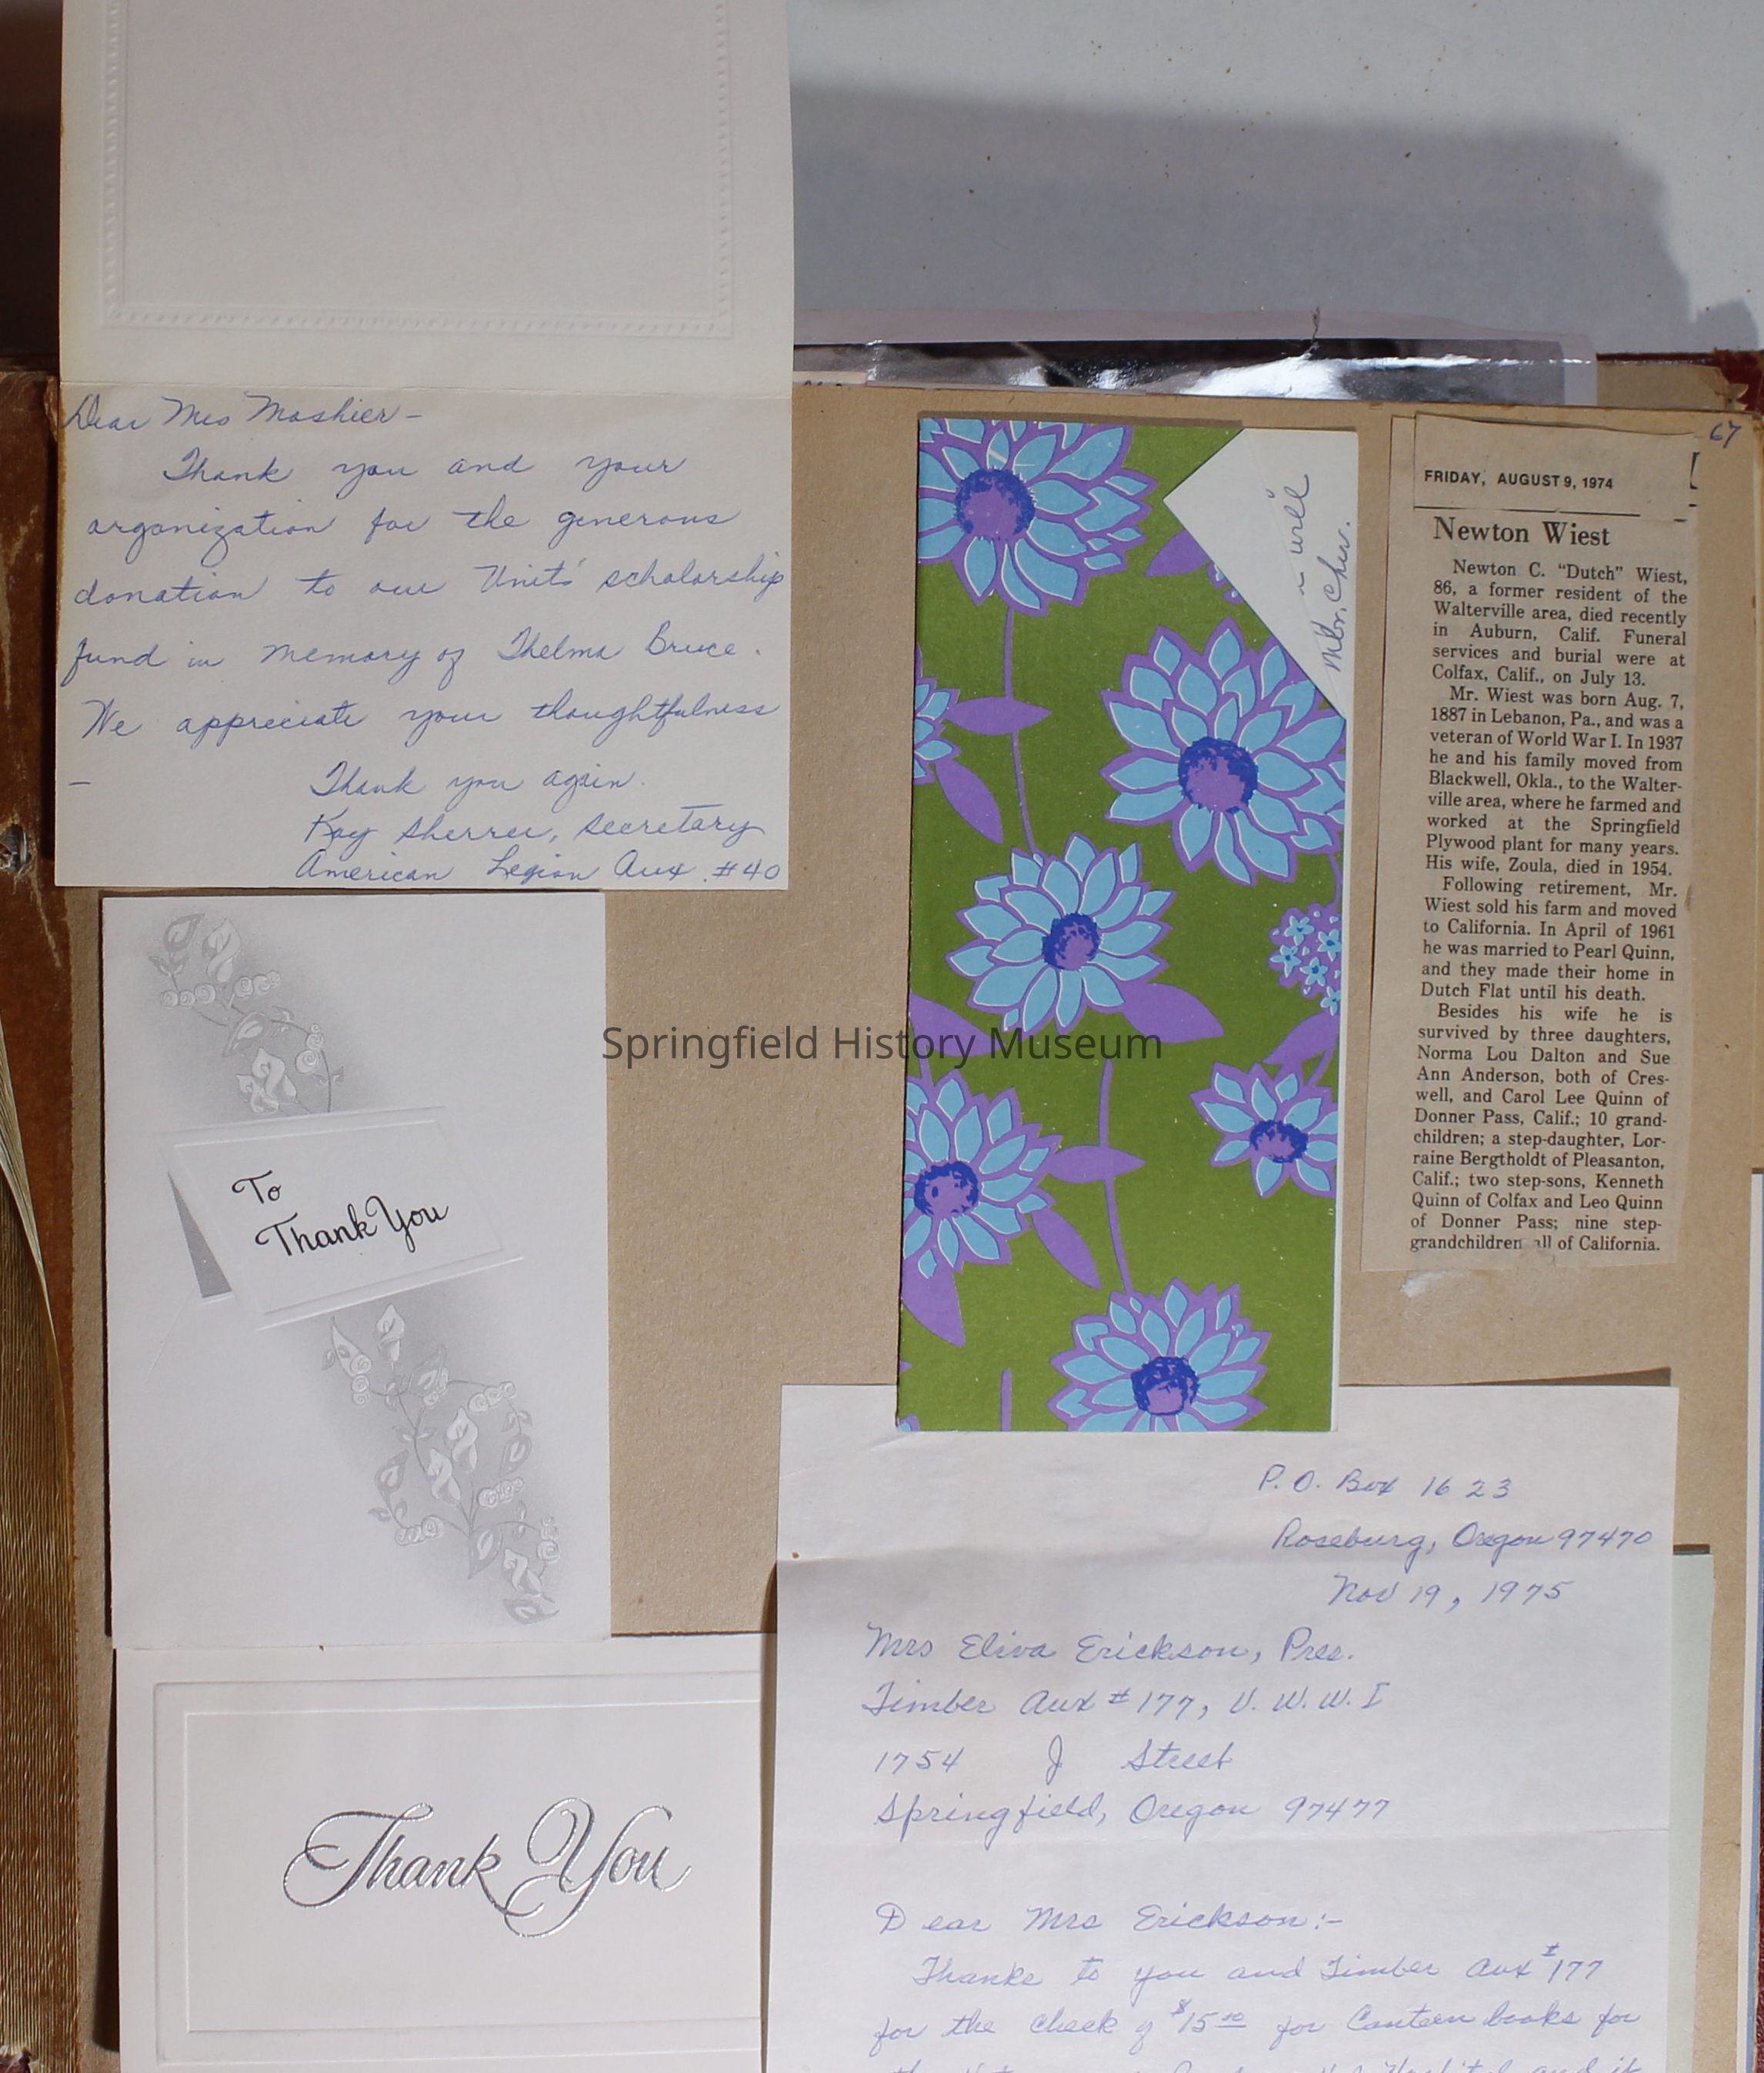 Dear Mrs Moshier-
Thank you and your
organization for the generous
donation to our Units' scholarship
fund in memory of Thelma Bruce.
We appreciate your thoughtfulness
—
Thank you again.
Kay Sherrer, Secretary
American Legion Aux. #40
To
Thank You
Thank You
will
Mbr. Chr.
67
FRIDAY, AUGUST 9, 1974
Newton Wiest
Newton C. “Dutch” Wiest,
86, a former resident of the
Walterville area, died recently
in Auburn, Calif. Funeral
services and burial were at
Colfax, Calif., on July 13.
Mr. Wiest was born Aug. 7,
1887 in Lebanon, Pa., and was a
veteran of World War I. In 1937
he and his family moved from
Blackwell, Okla., to the Walter-
ville area, where he farmed and
worked at the Springfield
Plywood plant for many years.
His wife, Zoula, died in 1954.
Following retirement, Mr.
Wiest sold his farm and moved
to California. In April of 1961
he was married to Pearl Quinn,
and they made their home in
Dutch Flat until his death.
Besides his wife he is
survived by three daughters,
Norma Lou Dalton and Sue
Ann Anderson, both of Cres-
well, and Carol Lee Quinn of
Donner Pass, Calif.; 10 grand-
children; a step-daughter, Lor-
raine Bergtholdt of Pleasanton,
Calif.; two step-sons, Kenneth
Quinn of Colfax and Leo Quinn
of Donner Pass; nine step-
grandchildren all of California.
Springfield History Museum
P.O. Box 1623
Roseburg, Oregon 97470
Nov 19, 1975
Mrs Eliva Erickson, Pres.
Timber Aux # 177, V.W.W.I
1754 J Street
Springfield, Oregon 97477
Dear Mrs Erickson:-
Thanks to you and Timber Aux #177
for the check of $15.00 for Canteen books for